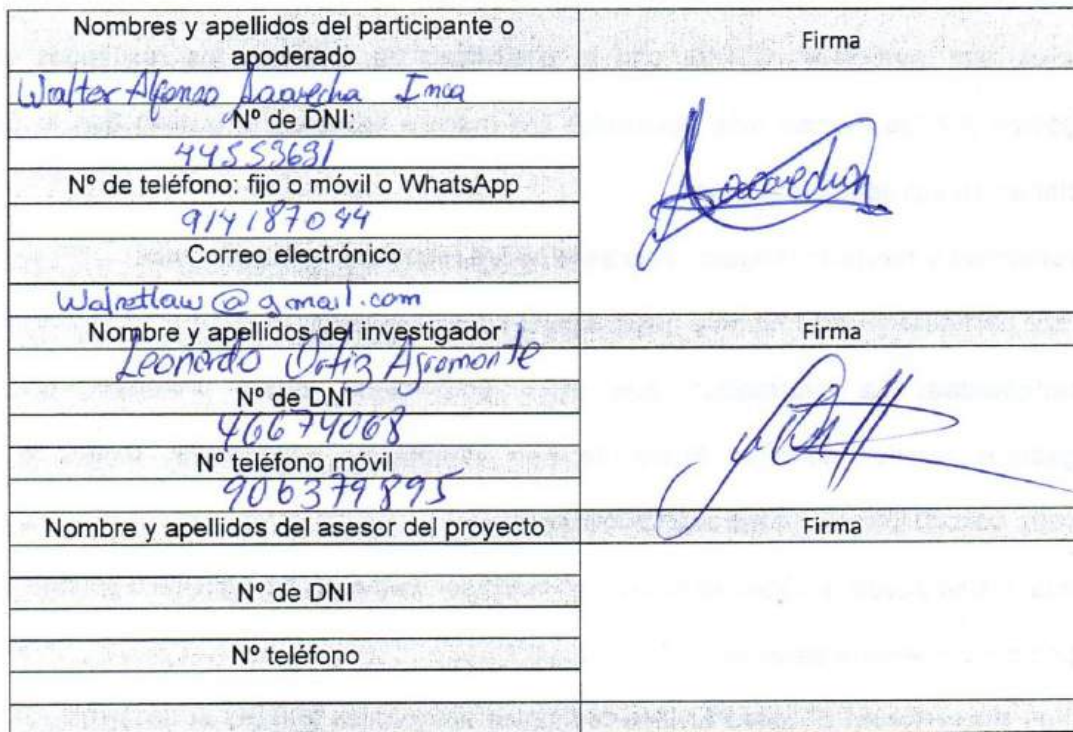 Nombres y apellidos del participante o
apoderado
Firma
Walter Alfonso Saavedra Inca
Nº de DNI:
44553631
Nº de teléfono: fijo o móvil o WhatsApp
914187044
Correo electrónico
Walretlaw@gmail.com
Nombre y apellidos del investigador
Firma
Leonardo Ortiz Agromonte
Nº de DNI
46674068
Nº teléfono móvil
906379895
Nombre y apellidos del asesor del proyecto
Firma
Nº de DNI
Nº teléfono